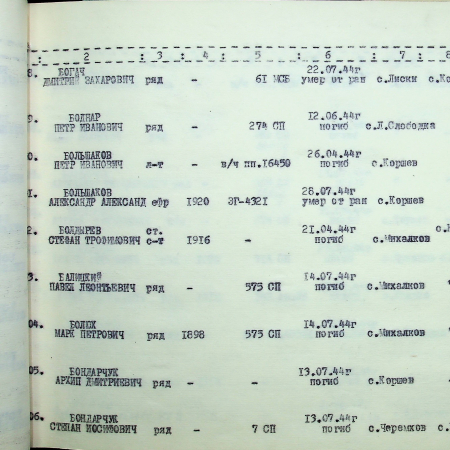 : 2 : 3 : 4 : 5 : 6 : 7 : 8
8. БОГАЧ 22.07.44г
ДМИТРИЙ ЗАХАРОВИЧ ряд - 61 МСБ умер от ран с.Лиски с.Ко
9. БОДНАР 12.06.44г
ПЕТР ИВАНОВИЧ ряд - 274 СП погиб с.Л.Слободка
0. БОЛЬШАКОВ 26.04.44г
ПЕТР ИВАНОВИЧ л-т - в/ч пп.16450 погиб с.Коршев
1. БОЛЬШАКОВ 28.07.44г
АЛЕКСАНДР АЛЕКСАНД ефр 1920 ЭГ-4321 умер от ран с.Коршев
2. БОЛДЫРЕВ ст. 21.04.44г
СТЕФАН ТРОФИМОВИЧ с-т 1916 - погиб с.Михалков
3. БАЛИЦКИЙ 14.07.44г
ПАВЕЛ ЛЕОНТЬЕВИЧ ряд - 575 СП погиб с.Михалков
04. БОЛЮК 14.07.44г
МАРК ПЕТРОВИЧ ряд 1898 575 СП погиб с.Михалков
05. БОНДАРЧУК 13.07.44г
АРХИП ДМИТРИЕВИЧ ряд - - погиб с.Коршев
06. БОНДАРЧУК 13.07.44г
СТЕПАН ИОСИФОВИЧ ряд - 7 СП погиб с.Черемхов с.